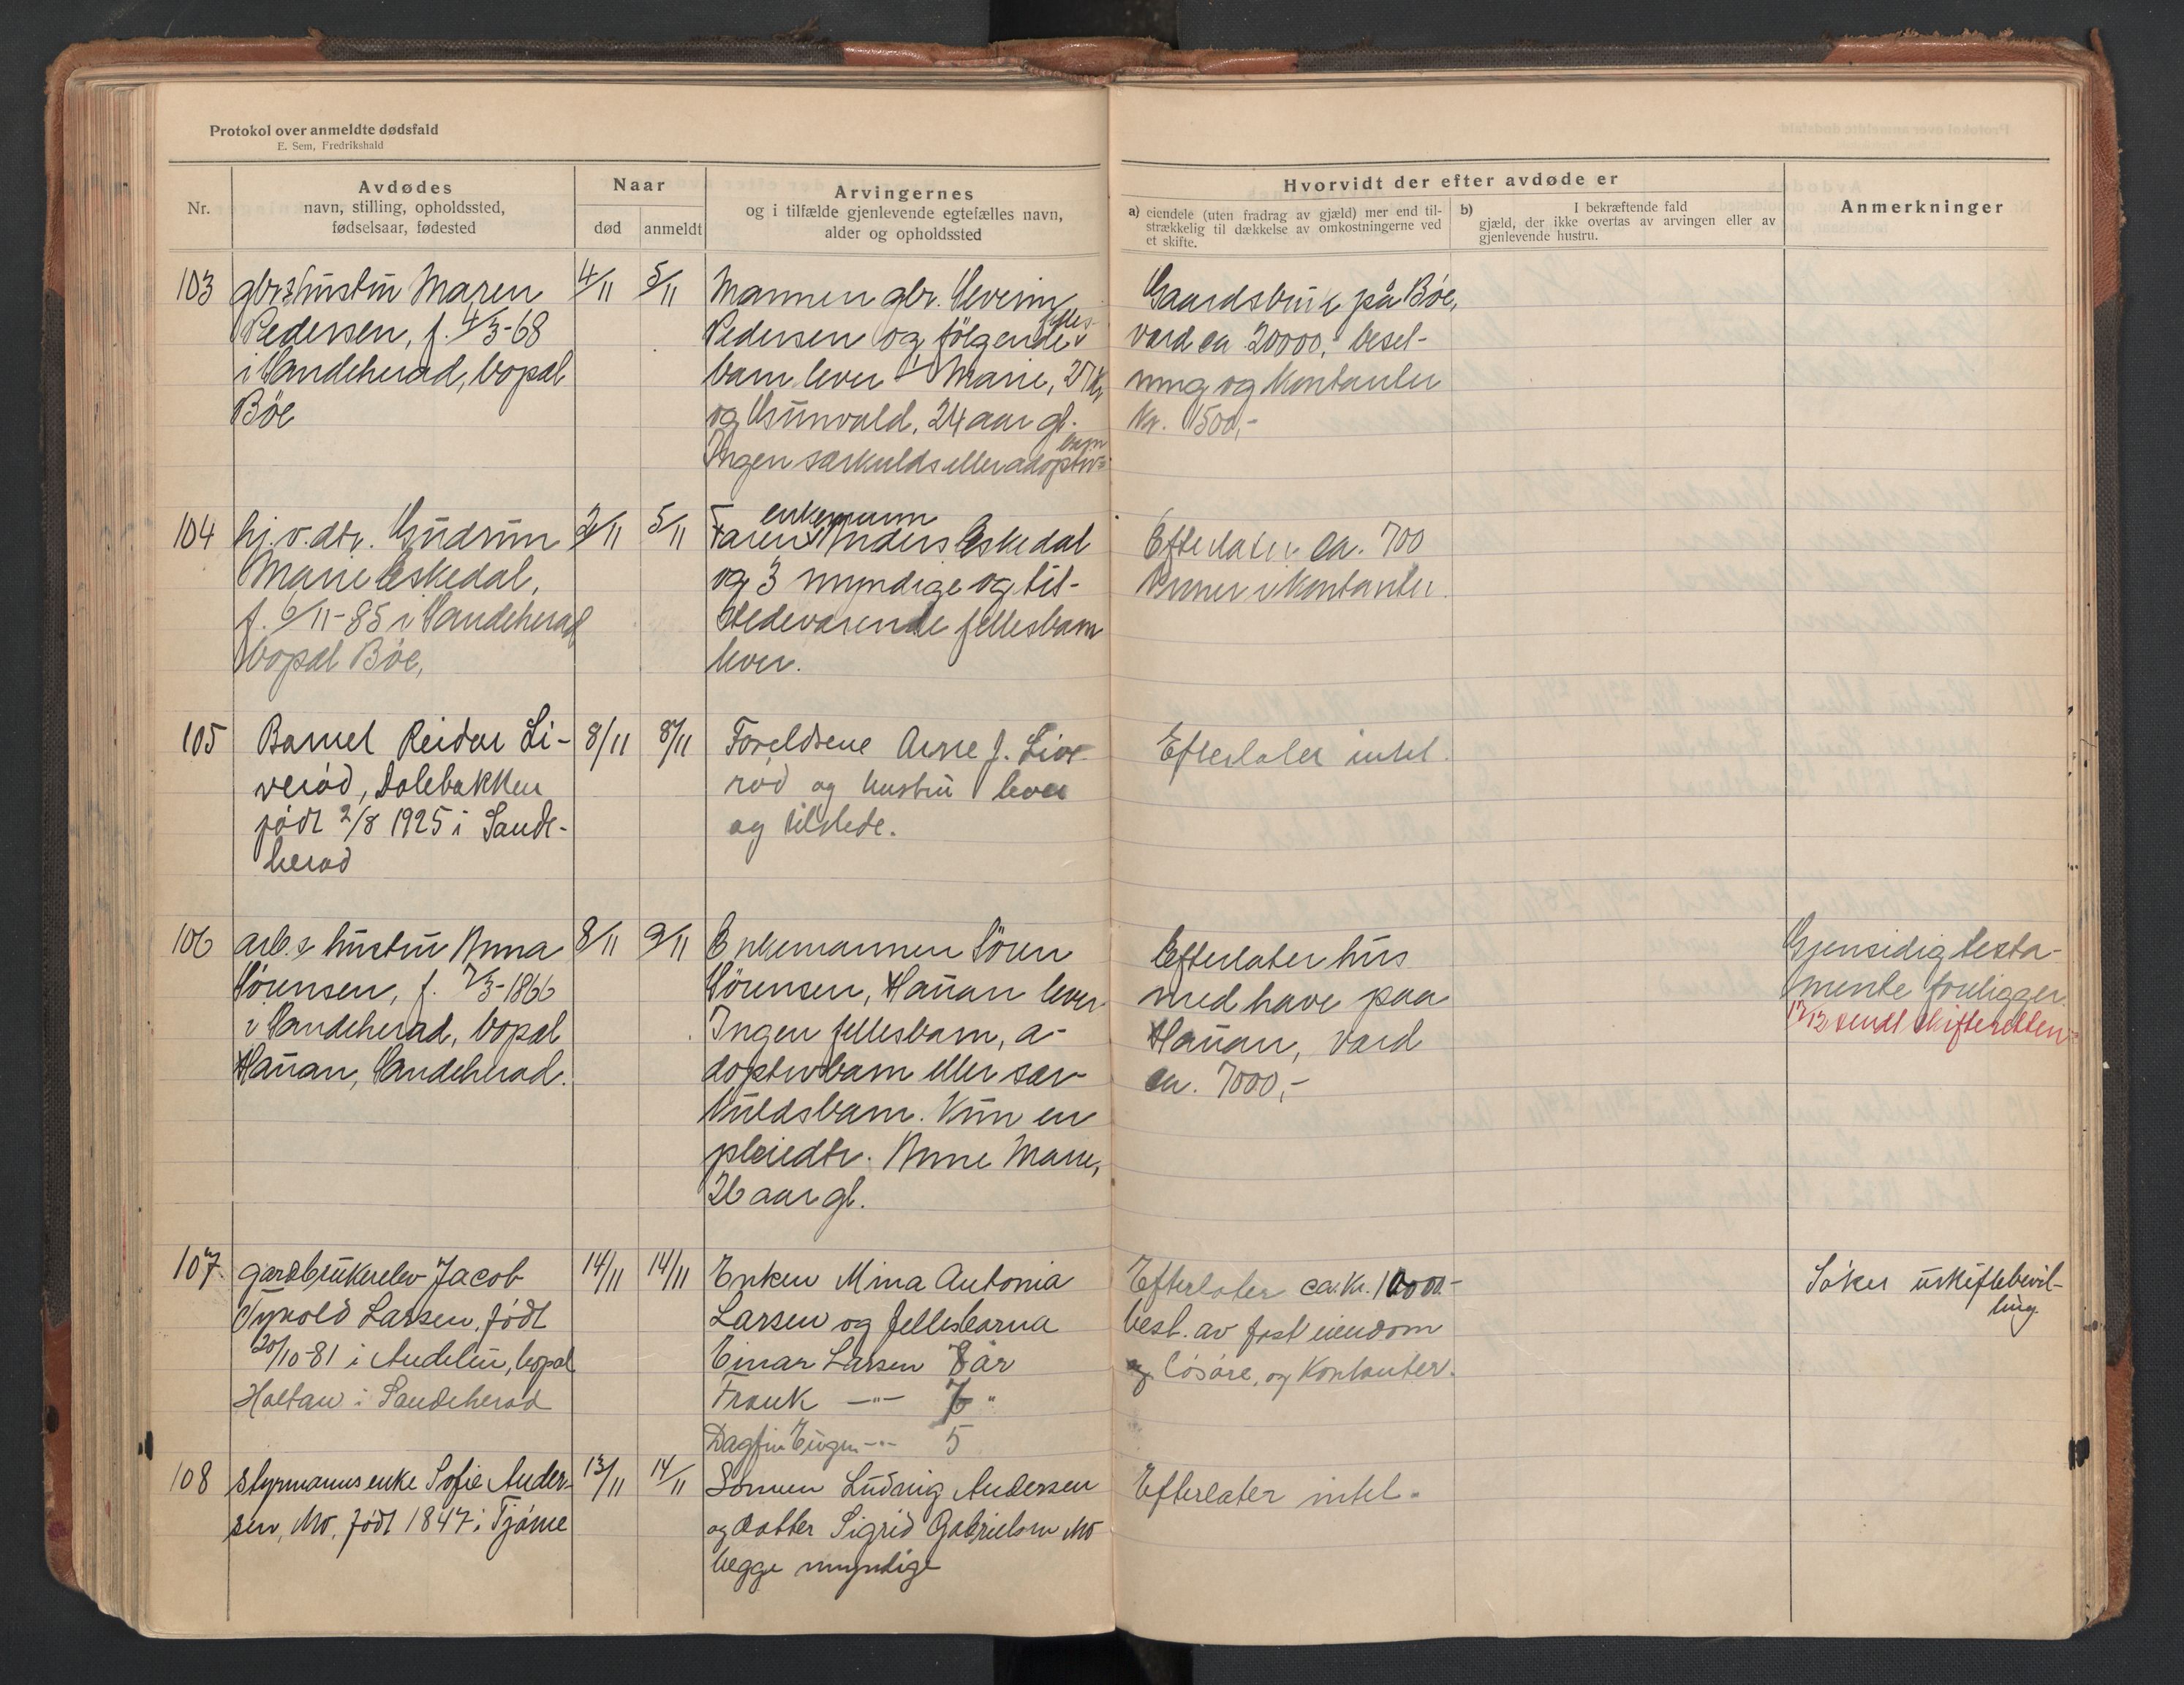 Protokol over anmeldte dødsfald
E. Sem, Fredrikshald
Nr.
Avdødes
navn, stilling, opholdssted,
fødselsaar, fødested
Naar
død
anmeldt
Arvingernes
og i tilfælde gjenlevende egtefælles navn,
alder og opholdssted
Hvorvidt der efter avdøde er
a) eiendele (uten fradrag av gjæld) mer end til-
strækkelig til dækkelse av omkostningerne ved
et skifte.
b) I bekræftende fald
gjæld, der ikke overtas av arvingen eller av
gjenlevende hustru.
Anmerkninger
103
gbr.s hustru Maren
Pedersen, f. 4/3-68
i Sandeherad, bopæl
Bøe
4/11
5/11
Mannen gbr. Severin
Pedersen og følgende felles-
barn lever Marie, 27
og Gunvald, 24 aar gl.
Ingen særkulds eller adoptiv-
barn
Gaardsbruk på Bøe,
værd ca 20000,- besæt-
ning og kontanter
kr. 1500,-
104
hj.v.dtr. Gudrun
Marie Eskedal,
f. 6/11-85 i Sandeherad
bopæl Bøe,
2/11
5/11
enkemann
Faren Anders Eskedal
og 3 myndige og til-
stedeværende fellesbarn
lever.
Efterlater ca. 700
kroner i kontanter.
105
Barnet Reidar Li-
verød, Dolebakken
født 2/8 1925 i Sande-
herad
8/11
8/11
Foreldrene Arne J. Live-
rød og hustru lever
og tilstede.
Efterlater intet.
106
arb.s hustru Anna
Sørensen, f. 7/3-1866
i Sandeherad, bopæl
Hauan, Sandeherad.
8/11
9/11
Enkemannen Søren
Sørensen, Hauan lever
Ingen fellesbarn, a-
doptivbarn eller sær-
kuldsbarn. Kun en
pleiedtr. Anne Marie,
26 aar gl.
Efterlater hus
med have paa
Hauan, værd
ca. 7000,-
Gjensidig testa-
mente foreligger.
12/12 sendt skifteretten
107
gardbrukerelev Jacob
Larsen, født
20/10-81 i Andebu, bopæl
Haltan i Sandeherad
14/11
14/11
Enken Mina Antonia
Larsen og fellesbarna
Einar Larsen 8 år
Frank —"— 7 "
Dagfin Eugen —"— 5
Efterlater ca. kr. 10000-
best. av fast eiendom
og løsøre, og kontanter.
Søker uskiftebevil-
ling.
108
Styrmanns enke Sofie Ander-
sen, Mo, født 1847 i Tjøme
13/11
14/11
Sønnen Ludvig Andersen
og datter Sigrid Gabrielsen Mo
begge myndige
Efterlater intet.